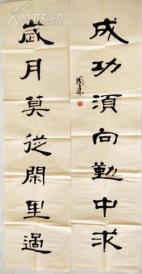 成功須向勤中求
歲月莫從閑里過